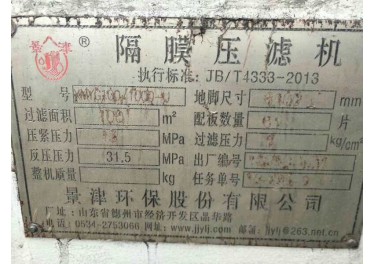 景津 ® 隔膜压滤机
执行标准: JB/T4333-2013
型号 地脚尺寸 mm
过滤面积 100 m² 配板数量 片
压紧压力 MPa 过滤压力 kg/cm²
反压压力 31.5 MPa 出厂编号
整机质量 kg 任务单号
景津环保股份有限公司
厂址: 山东省德州市经济开发区晶华路
电话: 0534-2753066 网址: www.jjylj.com 邮箱: jjylj@263.net.cn